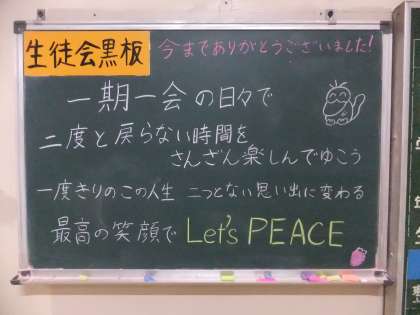 生徒会黒板
今までありがとうございました!
一期一会の日々で
二度と戻らない時間を
さんざん楽しんでゆこう
一度きりのこの人生 二つとない思い出に変わる
最高の笑顔で Let's PEACE